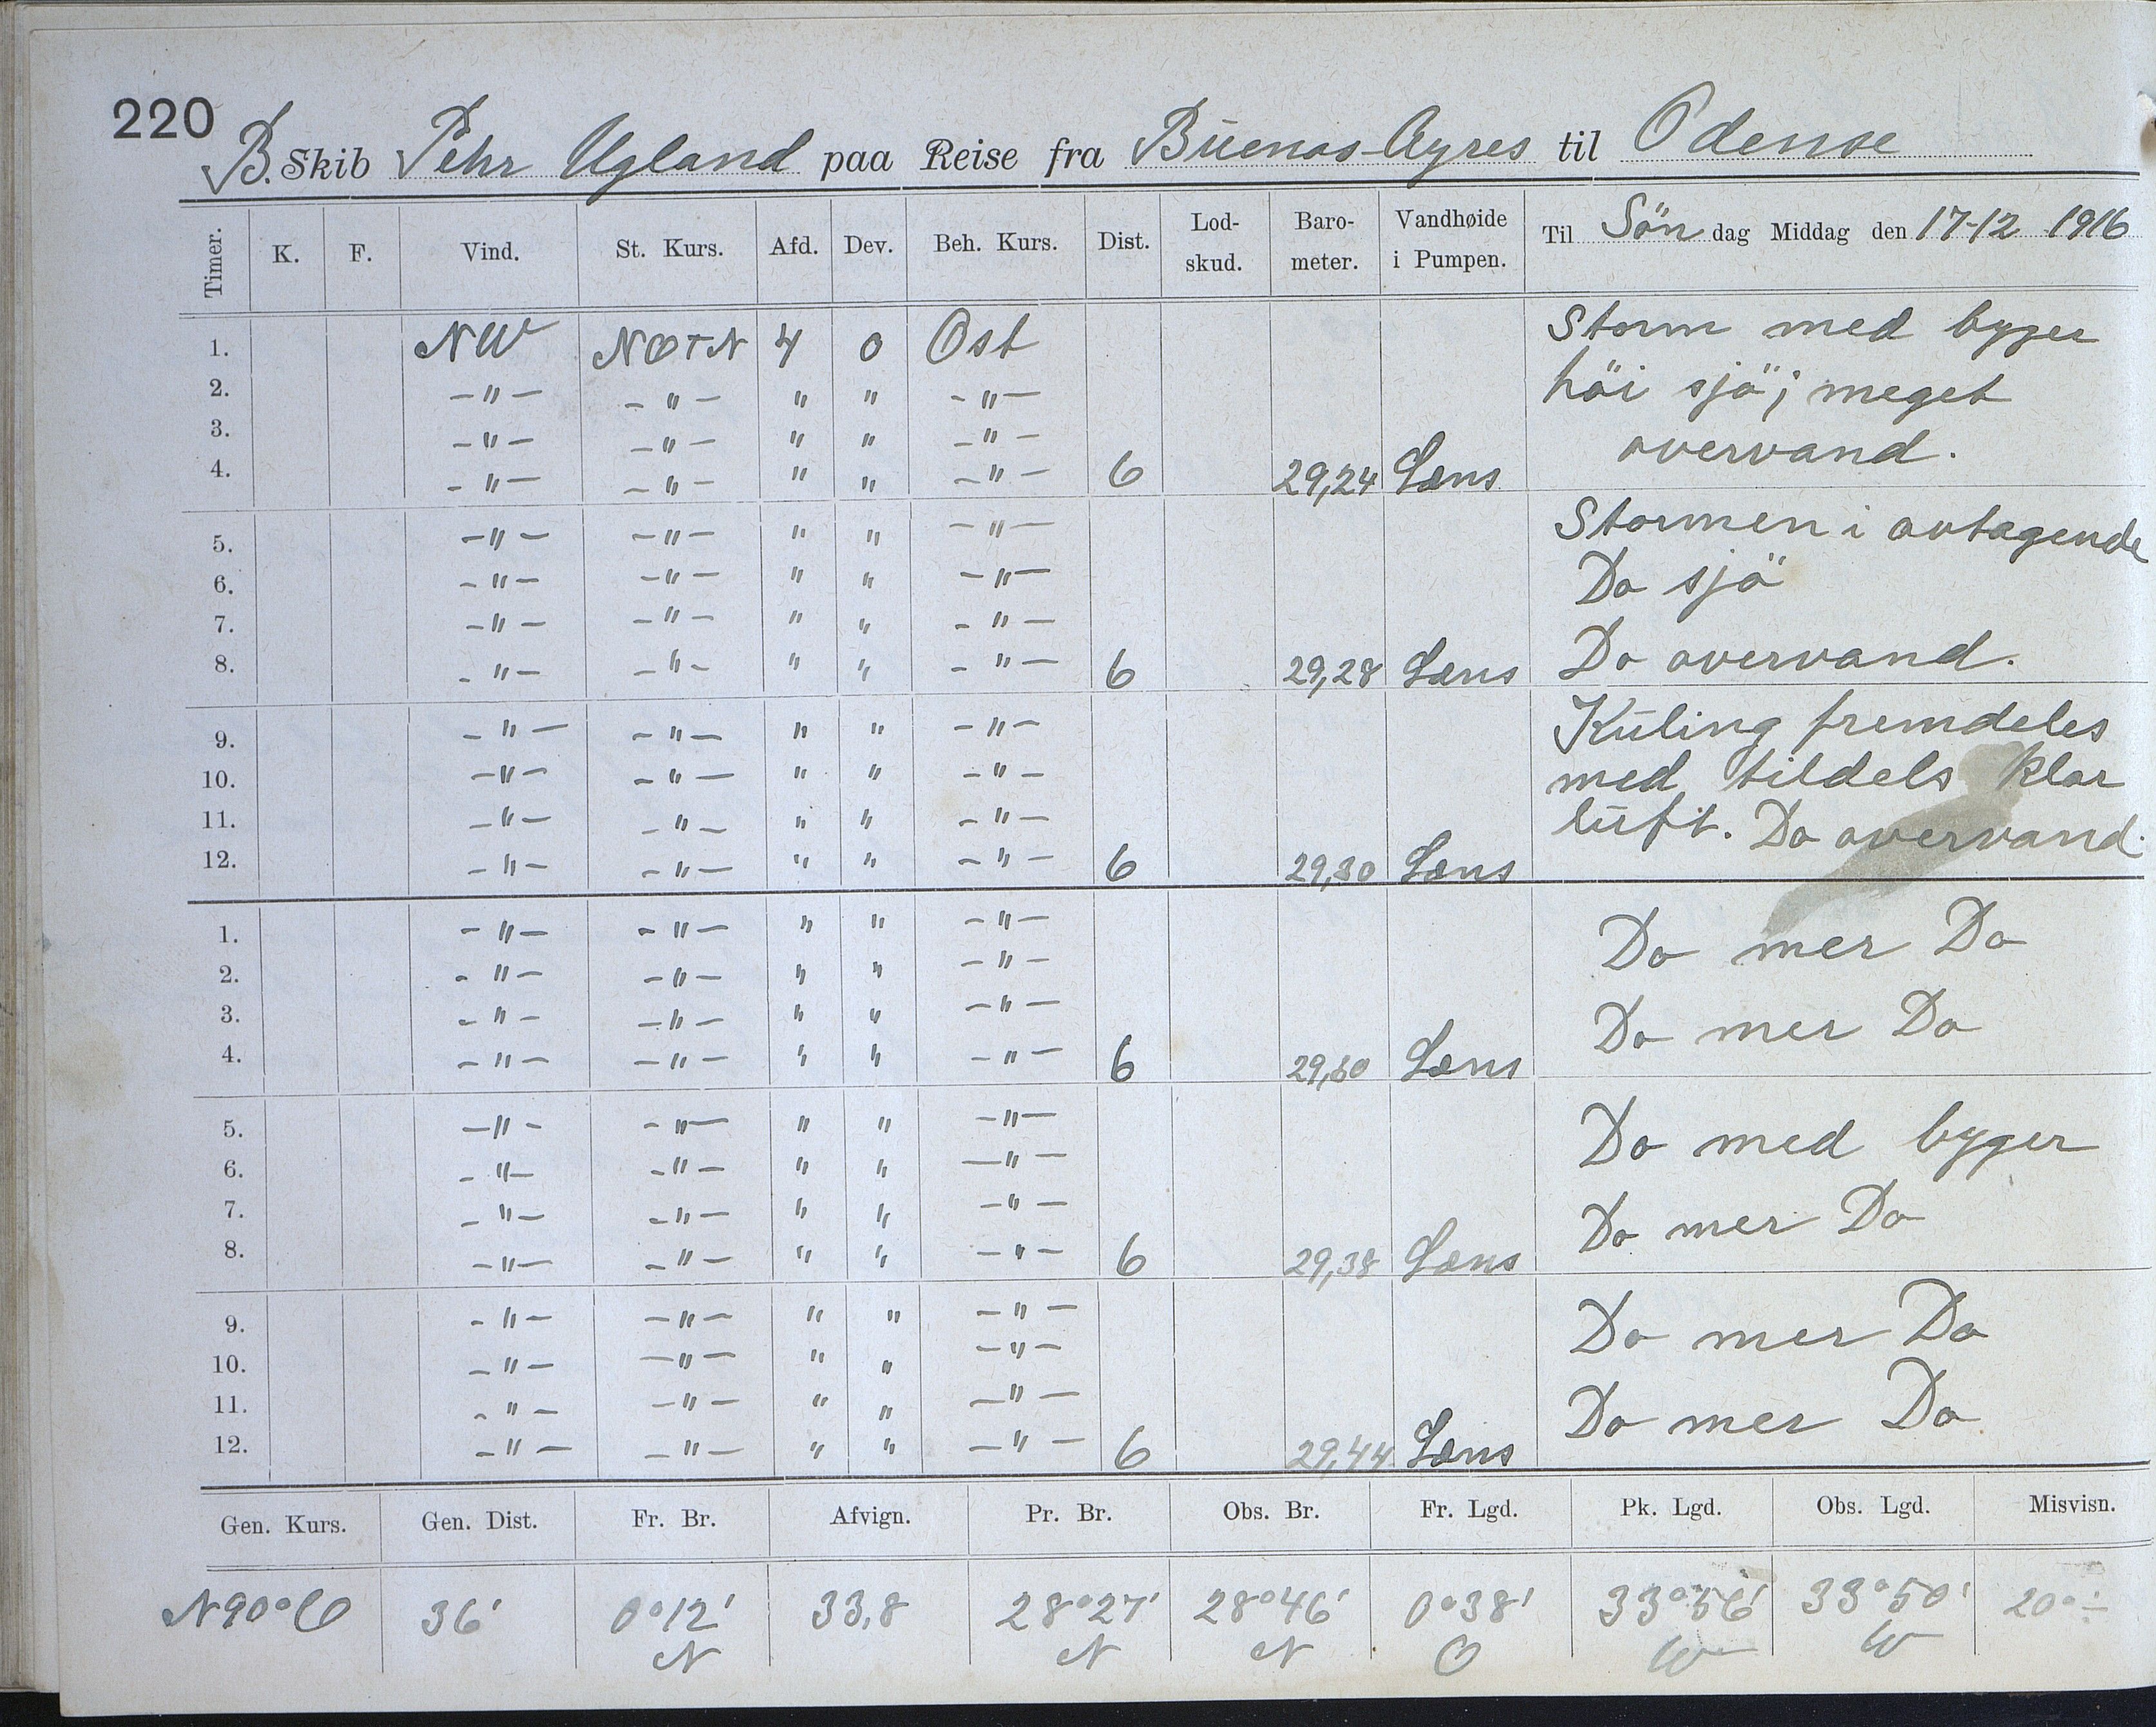 220
B. Skib Pehr Ugland paa Reise fra Buenos-Ayres til Odense
Timer. K. F. Vind. St. Kurs. Afd. Dev. Beh. Kurs. Dist. Lod-skud. Baro-meter. Vandhøide i Pumpen. Til Sön dag Middag den 17-12 1916
1. NW NOTN 4 0 Ost Storm med byger
2. -"- -"- " " -"- höi sjö; meget
3. -"- -"- " " -"- overvand.
4. -"- -"- " " -"- 6 29,24 Læns
5. -"- -"- " " -"- Stormen i avtagende
6. -"- -"- " " -"- Do sjö
7. -"- -"- " " -"-
8. -"- -"- " " -"- 6 29,28 Læns Do overvand.
9. -"- -"- " " -"- Kuling fremdeles
10. -"- -"- " " -"- med tildels klar
11. -"- -"- " " -"- luft. Do overvand.
12. -"- -"- " " -"- 6 29,30 Læns
1. -"- -"- " " -"- Do mer Do
2. -"- -"- " " -"-
3. -"- -"- " " -"- Do mer Do
4. -"- -"- " " -"- 6 Læns
5. -"- -"- " " -"- Do med byger
6. -"- -"- " " -"-
7. -"- -"- " " -"- Do mer Do
8. -"- -"- " " -"- 6 29,38 Læns
9. -"- -"- " " -"- Do mer Do
10. -"- -"- " " -"-
11. -"- -"- " " -"- Do mer Do
12. -"- -"- " " -"- 6 29,44 Læns
Gen. Kurs. Gen. Dist. Fr. Br. Afvign. Pr. Br. Obs. Br. Fr. Lgd. Pk. Lgd. Obs. Lgd. Misvisn.
N90°O 36' 0°12' 33,8 28°27' 28°46' 0°38' 33°56' 33°50' 20°÷
N N N O W W